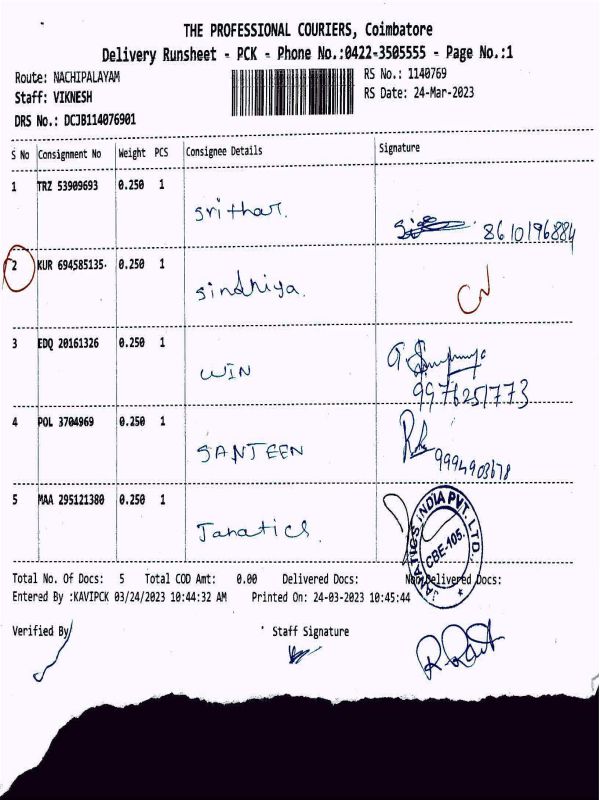 THE PROFESSIONAL COURIERS, Coimbatore
Delivery Runsheet - PCK - Phone No.:0422-3505555 - Page No.:1
Route: NACHIPALAYAM RS No.: 1140769
Staff: VIKNESH RS Date: 24-Mar-2023
DRS No.: DCJB114076901
S No Consignment No Weight PCS Consignee Details Signature
1 TRZ 53909693 0.250 1
Srithar. 8610196884
2 KUR 694585135 0.250 1
Sindhiya.
3 EDQ 20161326 0.250 1
WIN
9976251773
4 POL 3704969 0.250 1
SANTEEN 9994903678
5 MAA 295121380 0.250 1
Janatics.
JANATICS INDIA PVT. LTD.,
CBE-105.
Total No. Of Docs: 5 Total COD Amt: 0.00 Delivered Docs: Non Delivered Docs:
Entered By :KAVIPCK 03/24/2023 10:44:32 AM Printed On: 24-03-2023 10:45:44
Verified By Staff Signature